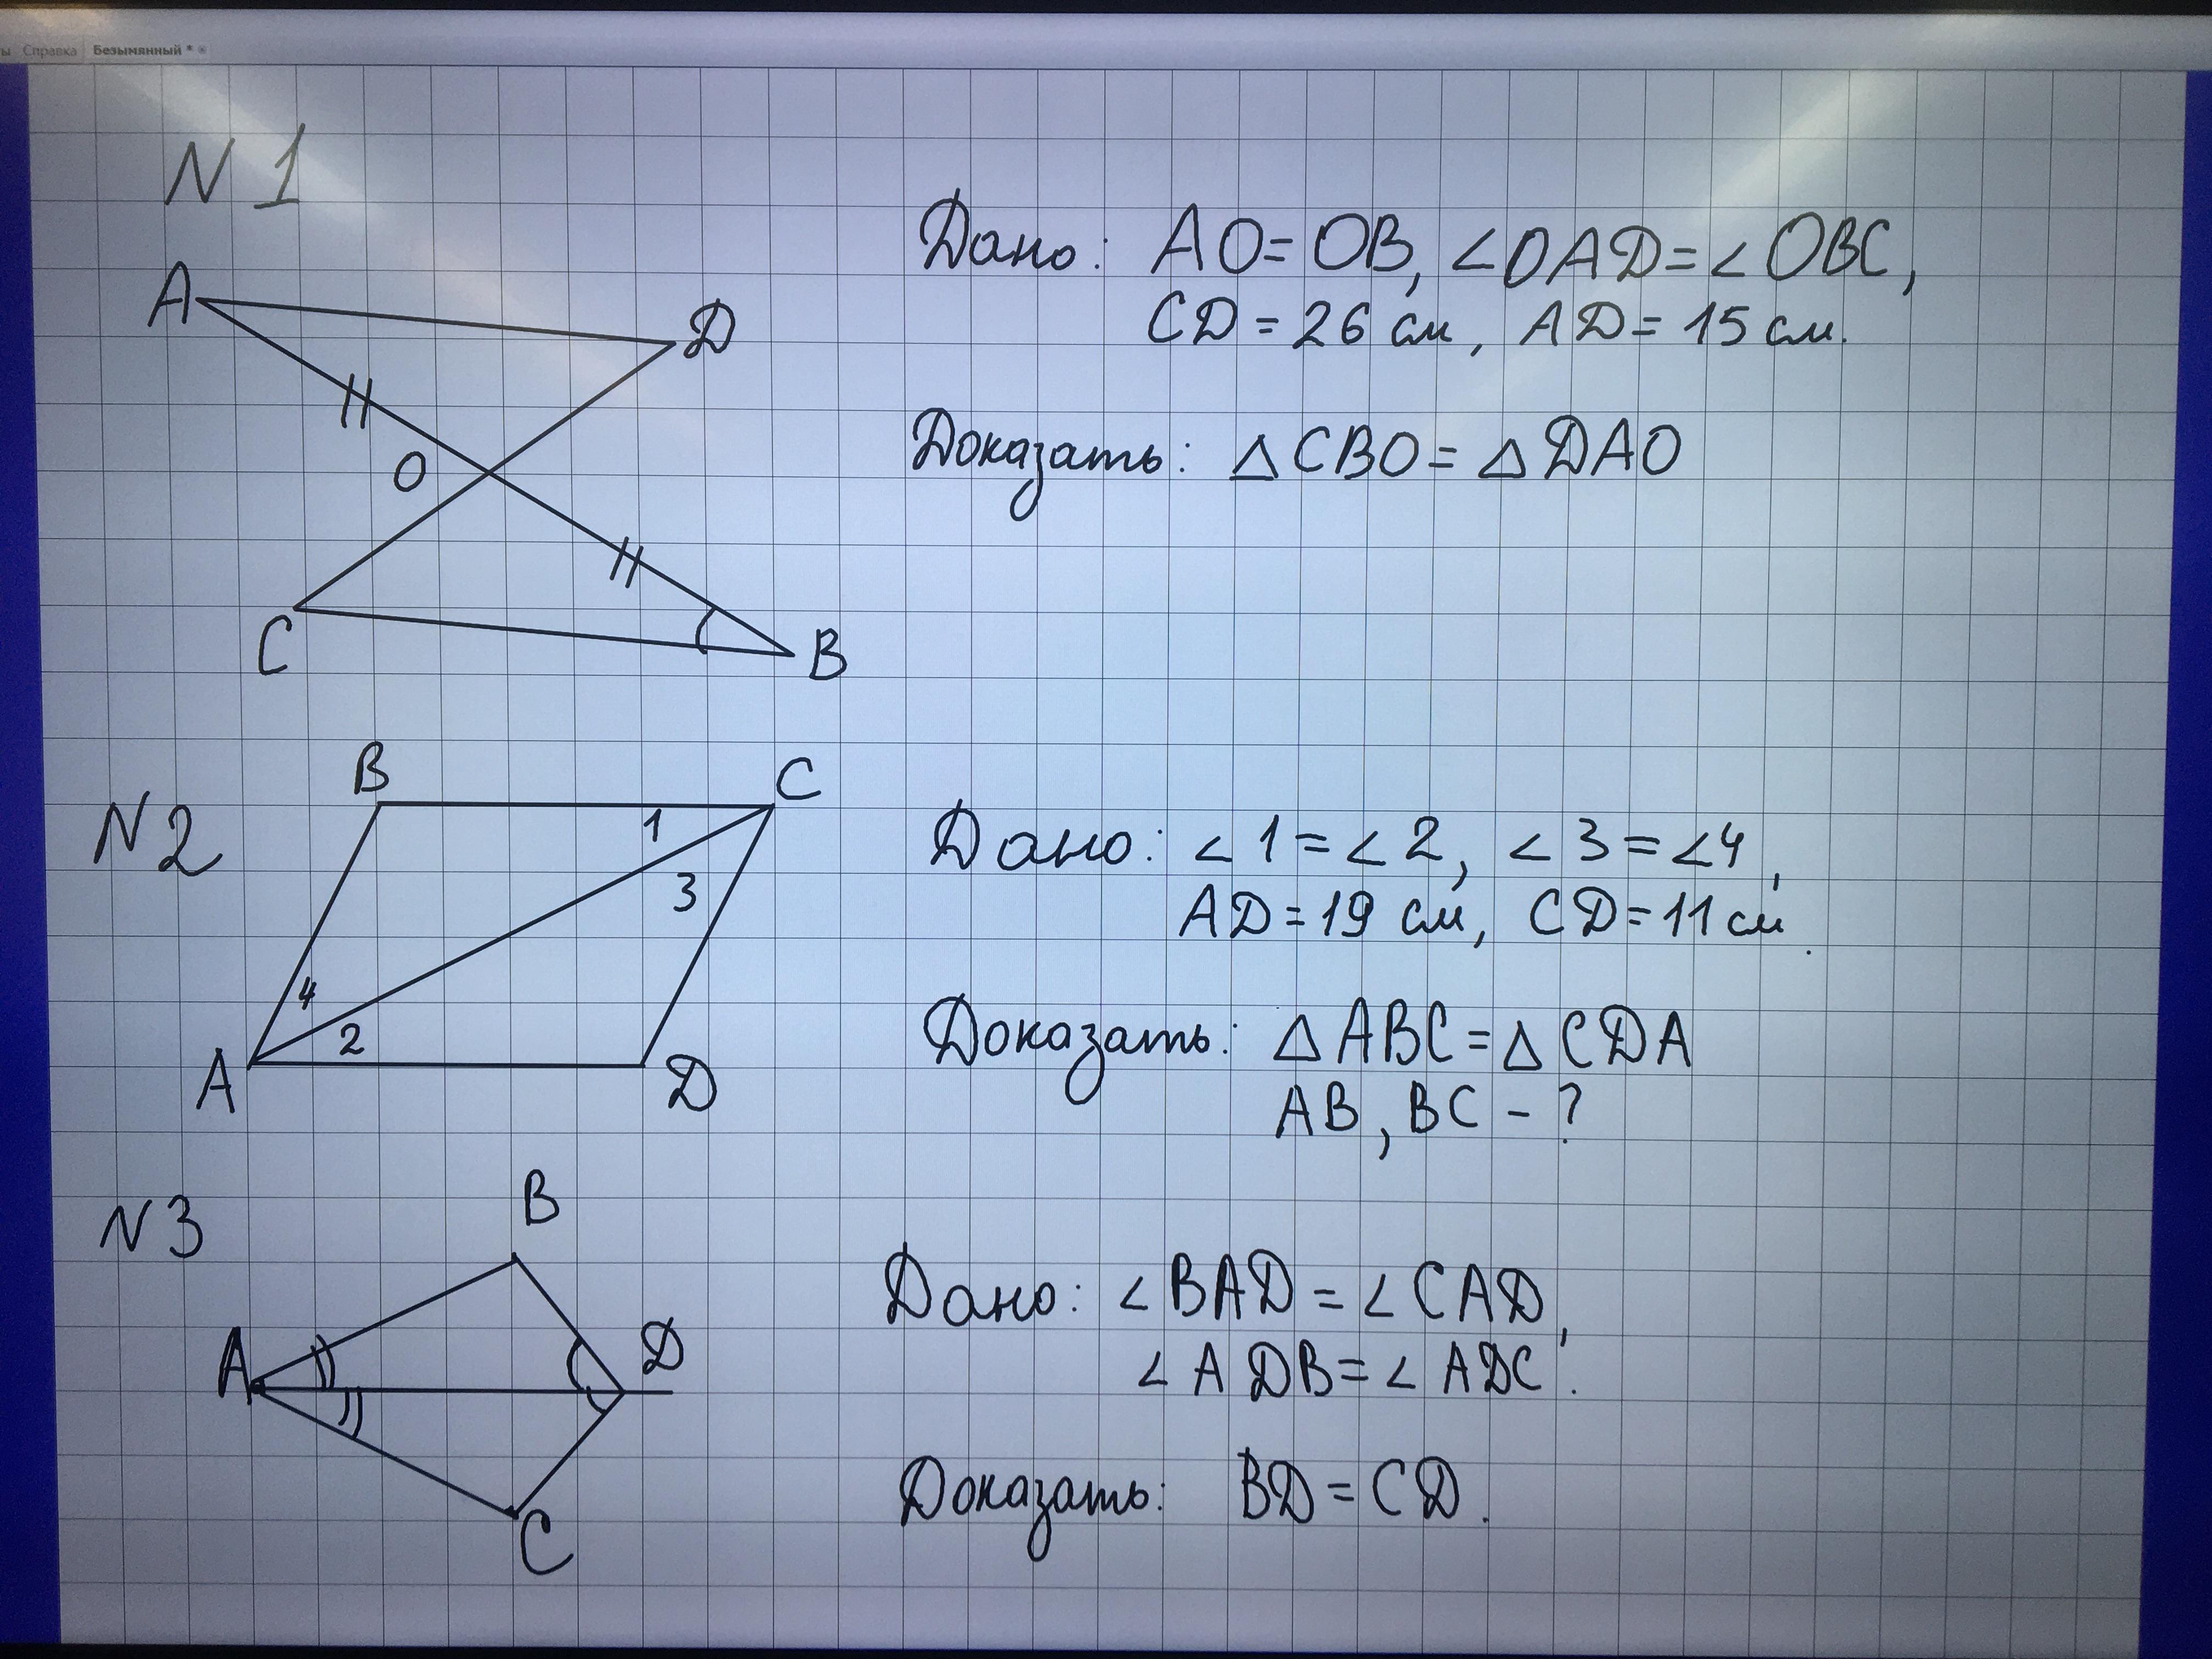 Справка Безымянный *
N 1
Дано: AO = OB, ∠OAD = ∠OBC,
CD = 26 см, AD = 15 см.
Доказать: △CBO = △DAO
A
D
O
C
B
N 2
B
C
1
3
4
2
A
D
Дано: ∠1 = ∠2, ∠3 = ∠4,
AD = 19 см, CD = 11 см.
Доказать: △ABC = △CDA
AB, BC - ?
N 3
B
A
D
C
Дано: ∠BAD = ∠CAD,
∠ADB = ∠ADC.
Доказать: BD = CD.